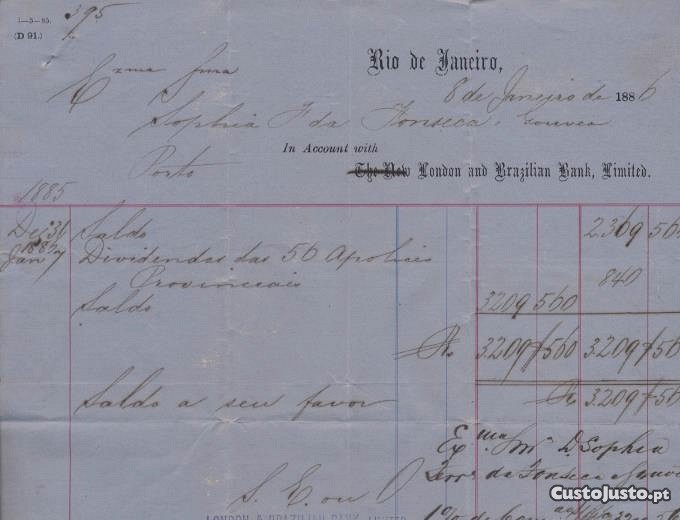 1—5—85.
395
(D 91.)
Rio de Janeiro,
Exma Snra
8 de Janeiro de 1886
Sophia F da Fonseca Gouvea
In Account with
Porto
The New London and Brazilian Bank, Limited.
1885
Dez 31 Saldo 2369 56
1886
Jan 7 Dividendos das 56 Apolices
Provinciaes 840
Saldo 3209 560
Rs 3209 560 3209 56
Saldo a seu favor Rs 3209 56
Exma Snra D. Sophia
da Fonseca
S. E. ou O
LONDON & BRAZILIAN BANK, LIMITED
CustoJusto.pt